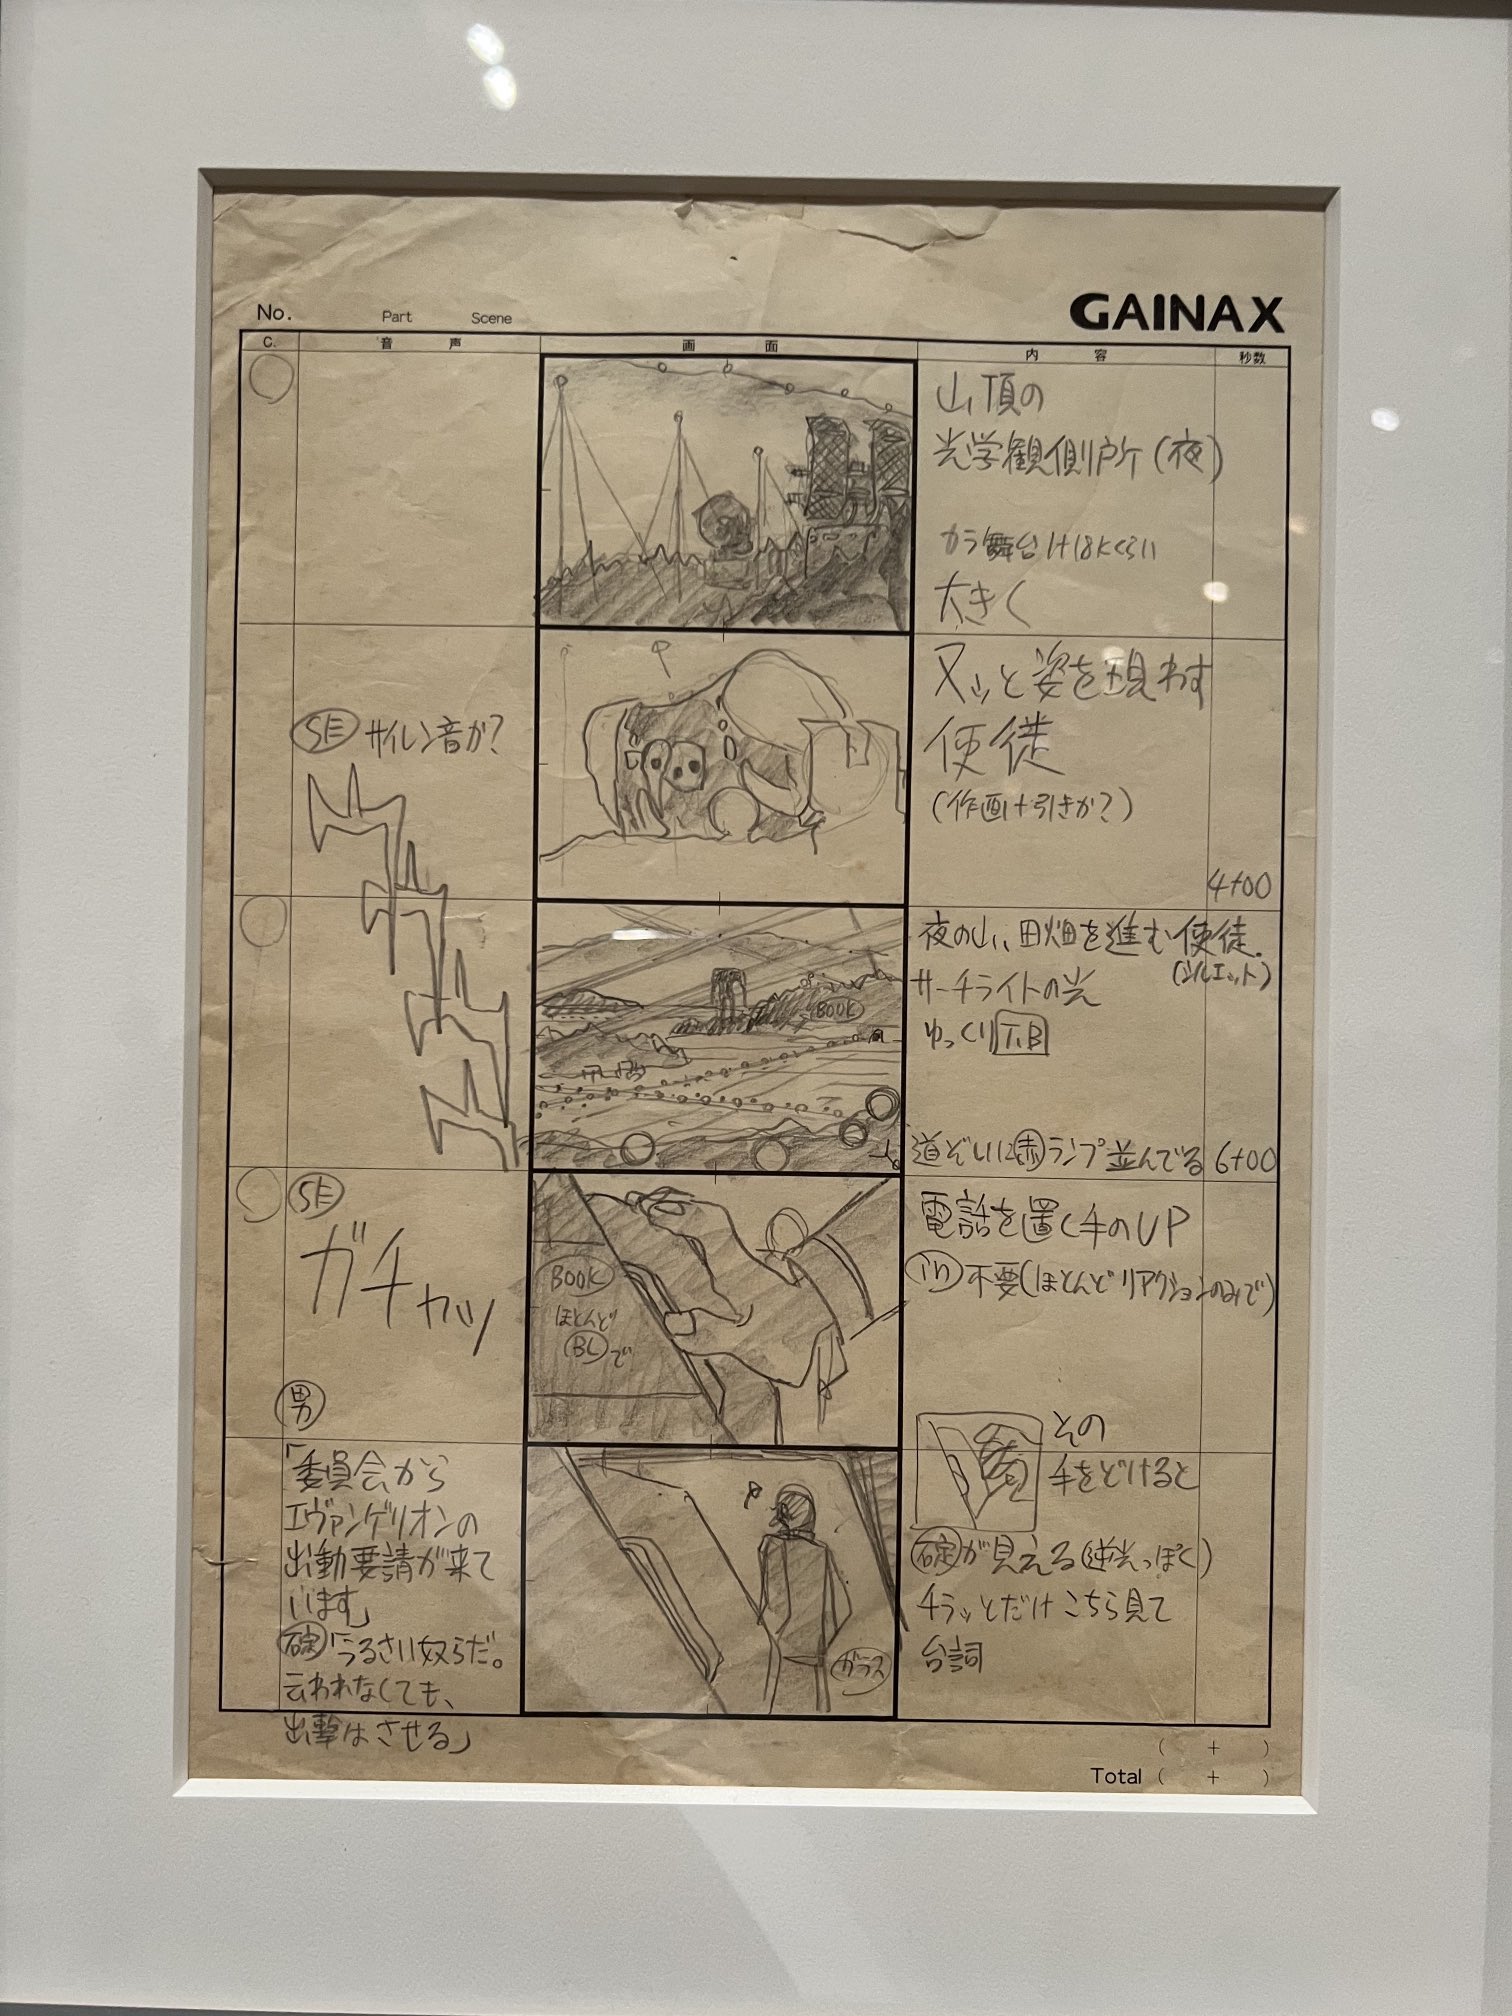 GAINAX
No. Part Scene
C. 音声 画面 内容 秒数
山頂の
光学観側所(夜)
カラ舞台1+18Kくらい
大きく
SE サイレン音か?
ヌッと姿を現わす
使徒
(作画+引きか?)
4+00
夜の山、田畑を進む使徒.
(シルエット)
サーチライトの光
ゆっくりT.B
BOOK
道ぞいに赤ランプ並んでる 6+00
SE
ガチャッ
BOOK
ほとんど
BLで
電話を置く手のUP
不要(ほとんどリアクションのみで)
男
「委員会から
エヴァンゲリオンの
出動要請が来て
います」
碇「うるさい奴らだ。
云われなくても、
出撃はさせる」
ガラス
その
手をどけると
碇が見える(逆光っぽく)
チラッとだけこちら見て
台詞
( + )
Total ( + )